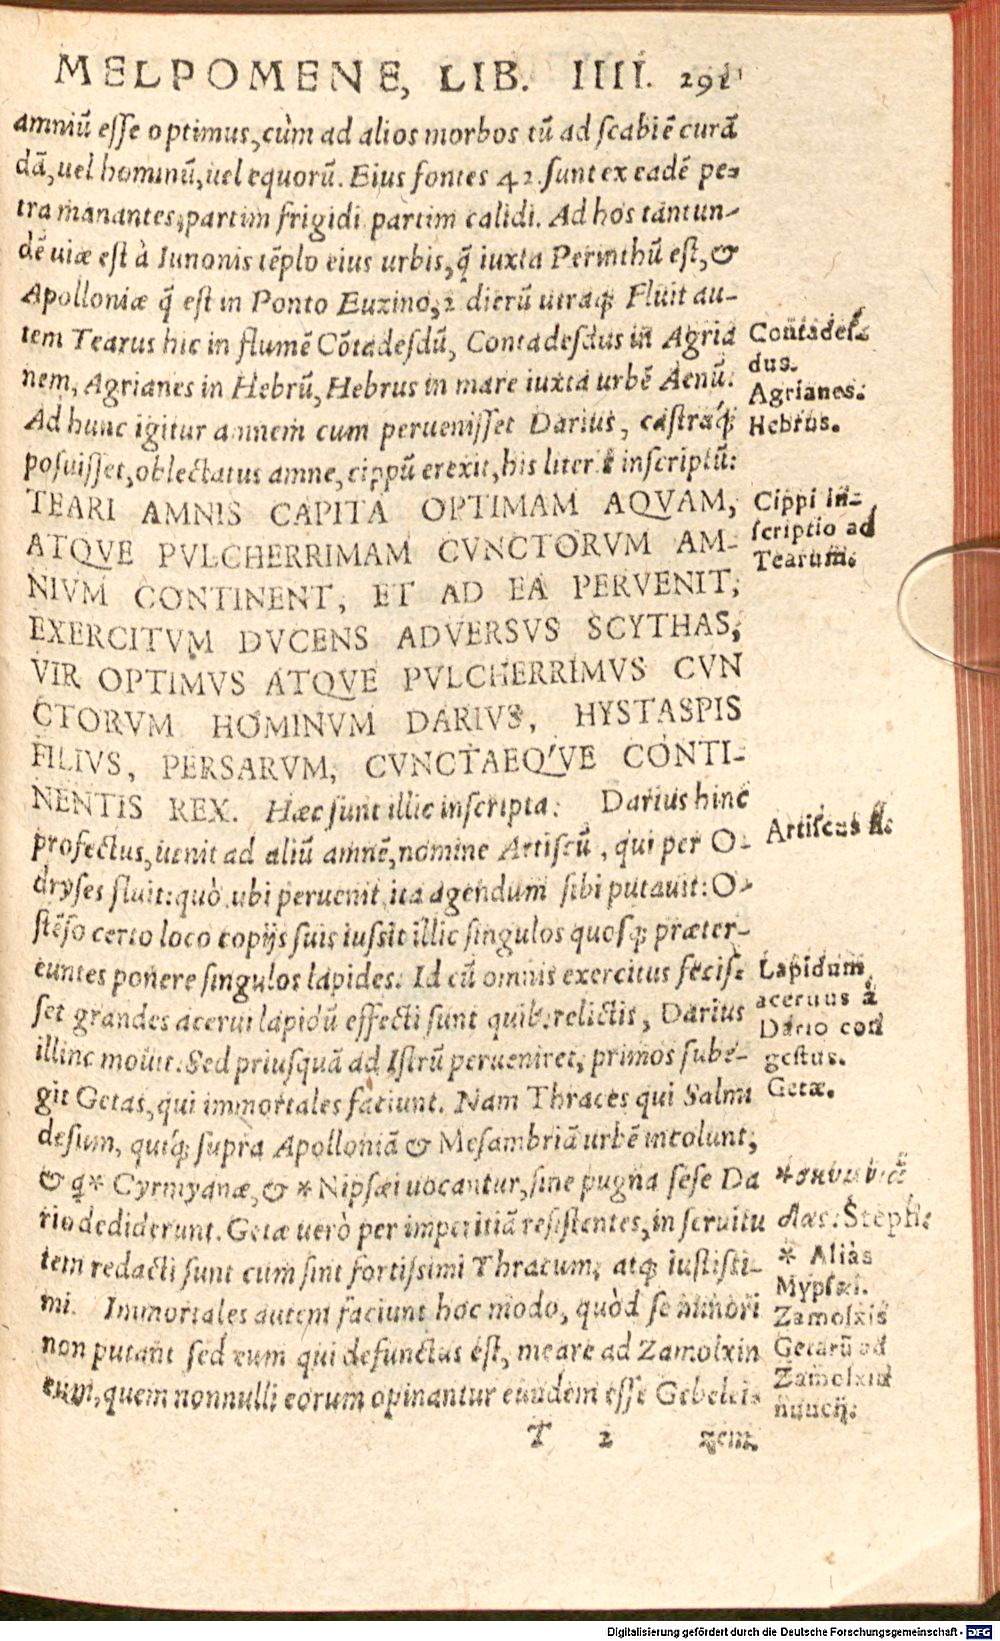 MELPOMENE, LIB. IIII. 291
amniū esse optimus, cùm ad alios morbos tū ad scabiē curā
dā, uel hominū, uel equorū. Eius fontes 42. sunt ex eadē pe-
tra manantes, partim frigidi partim calidi. Ad hos tantun-
dē uiæ est à Iunonis tēplo eius urbis, q̄ iuxta Perinthū est, &
Apolloniæ q̄ est in Ponto Euxino, 2 dierū utraq; Fluit au-
tem Tearus hic in flumē Cōtadesdū, Contadesdus in Agria
nem, Agrianes in Hebrū, Hebrus in mare iuxta urbē Aenū.
Ad hunc igitur amnem cum peruenisset Darius, castráq;
posuisset, oblectatus amne, cippū erexit, his liter inscriptū:
TEARI AMNIS CAPITA OPTIMAM AQVAM,
ATQVE PVLCHERRIMAM CVNCTORVM AM-
NIVM CONTINENT, ET AD EA PERVENIT,
EXERCITVM DVCENS ADVERSVS SCYTHAS,
VIR OPTIMVS ATQVE PVLCHERRIMVS CVN
CTORVM HOMINVM DARIVS, HYSTASPIS
FILIVS, PERSARVM, CVNCTAEQ'VE CONTI-
NENTIS REX. Hæc sunt illic inscripta. Darius hinc
profectus, uenit ad aliū amnē, nomine Artiscū, qui per O-
dryses fluit: quò ubi peruenit, ita agendum sibi putauit: O-
stēso certo loco copijs suis iussit illic singulos quosq; præter-
euntes ponere singulos lapides. Id cū omnis exercitus fecis-
set grandes acerui lapidū effecti sunt quib. relictis, Darius
illinc mouit. Sed priusquā ad Istrū perueniret, primos sube-
git Getas, qui immortales faciunt. Nam Thraces qui Salmi
desum, quíq; supra Apolloniā & Mesambriā urbē incolunt,
& q * Cyrmyanæ, & * Nipsæi uocantur, sine pugna sese Da
rio dediderunt. Getæ uerò per imperitiā resistentes, in seruitu
tem redacti sunt cum sint fortissimi Thracum, atq; iustissi-
mi. Immortales autem faciunt hoc modo, quòd se minori
non putant sed eum qui defunctus est, meare ad Zamolxin
eum, quem nonnulli eorum opinantur eundem esse Gebelei-
T 2 zem.
Contades-
dus.
Agrianes.
Hebrus.
Cippi in-
scriptio ad
Tearum.
Artiscus fl.
Lapidum
aceruus à
Dario con
gestus.
Getæ.
Steph.
* Aliàs
Mypsæi.
Zamolxis
Getarū ad
Zamolxin
nuncij.